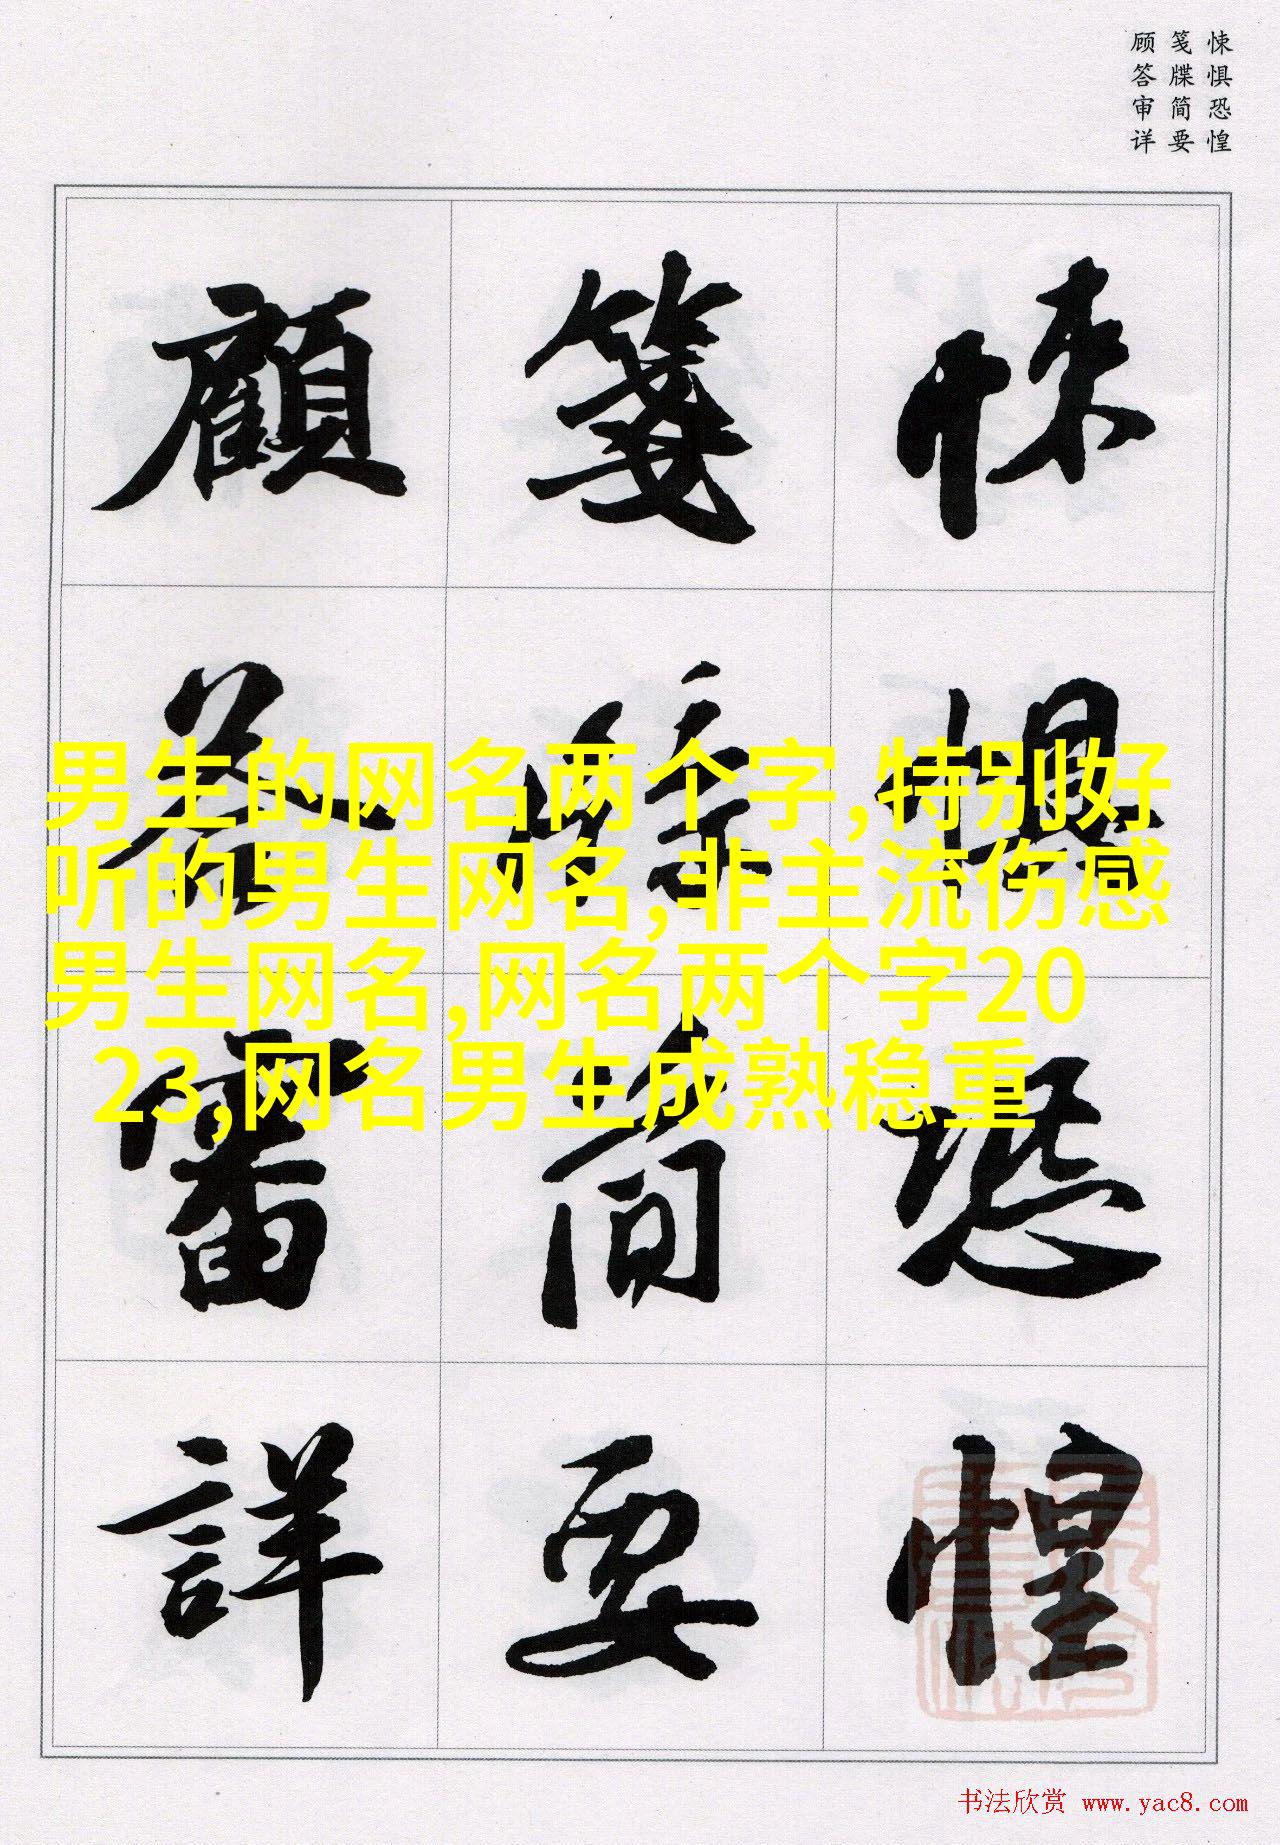 悚惧恐惶
笺牒简要
顾答审详
悚懼恐惶
箋牒简要
顧答審詳
男生的网名两个字,特别好
听的男生网名,非主流伤感
男生网名,网名两个字20
23,网名男生成熟稳重
书法欣赏 www.yac8.com